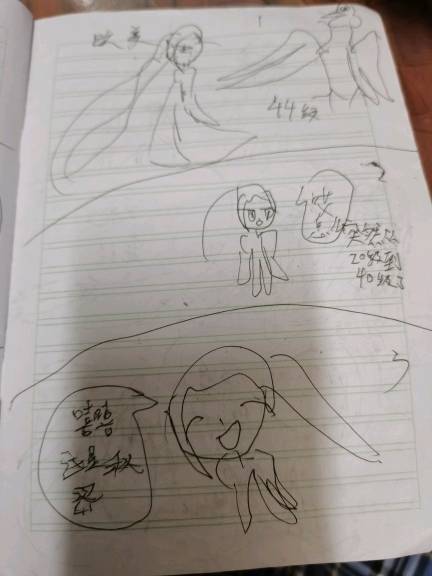 1
44级
2
哎
怎
突然从
20级到
40级了
3
嘻嘻
这是秘
密